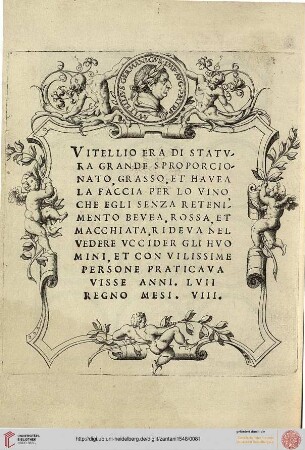 VITELLIO ERA DI STATV-
RA GRANDE SPROPORCIO
NATO, GRASSO, ET HAVEA
LA FACCIA PER LO VINO,
CHE EGLI SENZA RETENI-
MENTO BEVEA, ROSSA, ET
MACCHIATA, RIDEVA NEL
VEDERE VCCIDER GLI HVO
MINI, ET CON VILISSIME
PERSONE PRATICAVA
VISSE ANNI. LVII
REGNO MESI. VIII.
UNIVERSITÄTS-
BIBLIOTHEK
HEIDELBERG
http://digi.ub.uni-heidelberg.de/diglit/zantani1548/0081